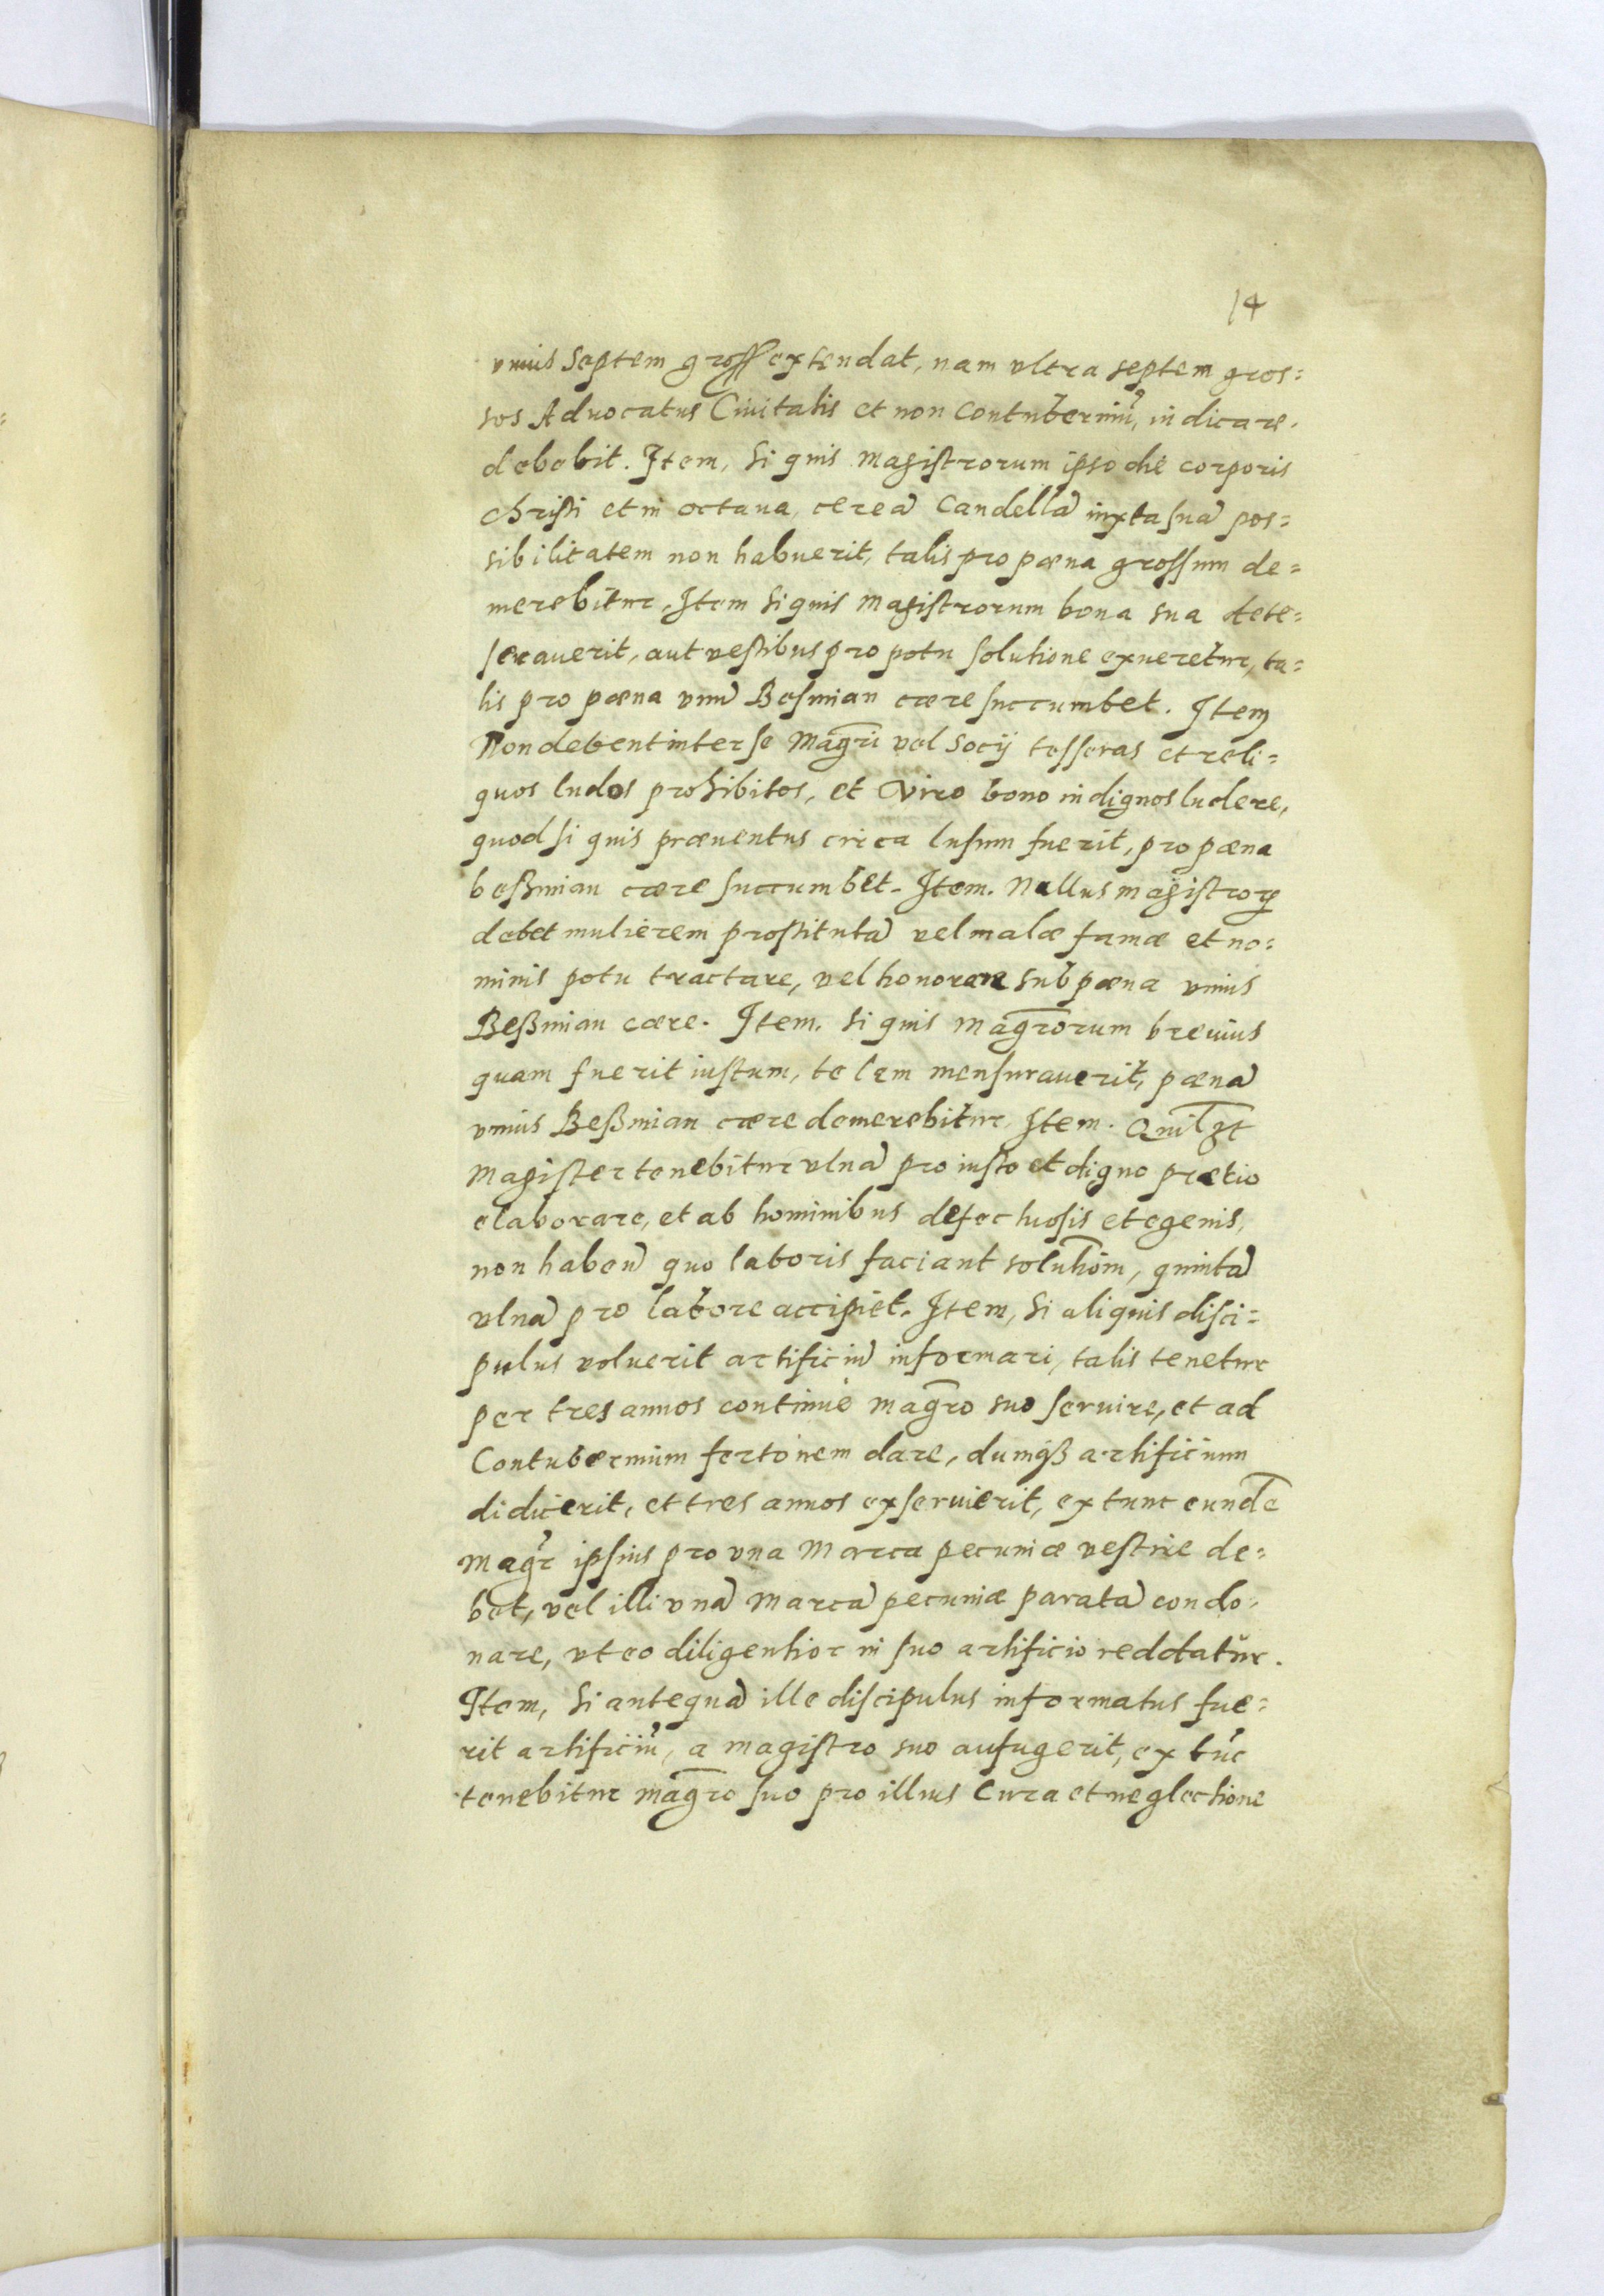 14
vnius Septem gross extendat, nam vltra septem gros=
sos Aduocatus Ciuitatis et non Contuberniũ, iudicare
debebit. Item, Si quis Magistrorum ipso die corporis
christi et in octaua, cereã Candellã iuxta suã pos=
sibilitatem non habuerit, talis pro pœna grossum de=
merebitur. Item Si quis Magistrorum bona sua dete=
secauerit, aut vestibus pro potu solutione exueretur, ta=
lis pro pœna vnũ Besmian cære succumbet. Item
Non debent inter se Magr̃i vel Socij tesseras et reli=
quos ludos prohibitos, et viro bono indignos ludere,
quod si quis præuentus circa lusum fuerit, pro pœna
beßmian cære succumbet. Item. Nullus magistroꝝ
debet mulierem prostitutã vel malæ famæ et no=
minis potu tractare, vel honorare sub pœna vnius
Beßmian cære. Item. Si quis magr̃orum breuius
quam fuerit iustum, telam mensurauerit, pœnã
vnius Beßmian cære demerebitur. Item. Quilꝫt
Magister tenebitur vlnã pro iusto et digno prætio
elaborare, et ab hominibus defectuosis et egenis,
non habeñ quo laboris faciant solutiom̃, quintã
vlnã pro labore accipiet. Item, Si aliquis disci=
pulus voluerit artificiũ informari, talis tenetur
per tres annos continuè magr̃o suo seruire, et ad
Contubernium fertonem dare, dumqꝫ artificium
didicerit, et tres annos exseruierit, extunc eundẽ
Magr̃ ipsius pro vna Marca pecuniæ vestire de=
bet, vel illi vnã Marcã pecuniæ paratã condo=
nare, vt eo diligentior in suo artificio reddatur.
Item, Si antequã ille discipulus informatus fue=
rit artificiũ, a magistro suo aufugerit, ex tũc
tenebitur magr̃o suo pro illius Cura et neglectione